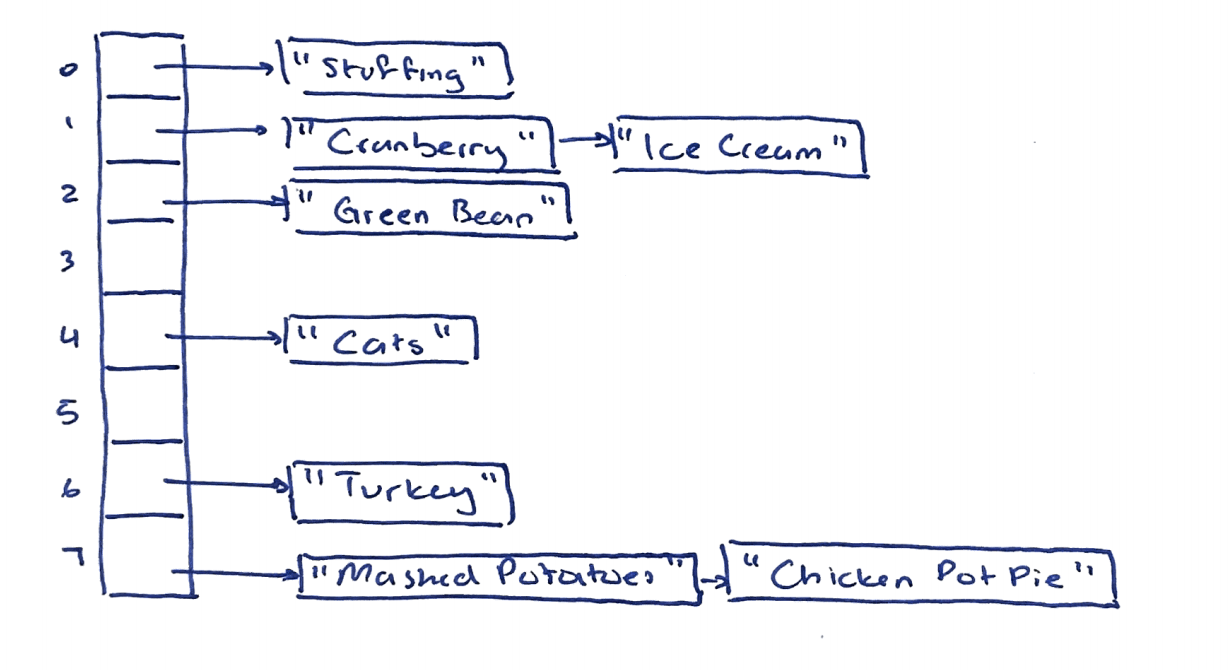 0 "Stuffing"
1 "Cranberry" "Ice Cream"
2 "Green Bean"
3
4 "Cats"
5
6 "Turkey"
7 "Mashed Potatoes" "Chicken Pot Pie"